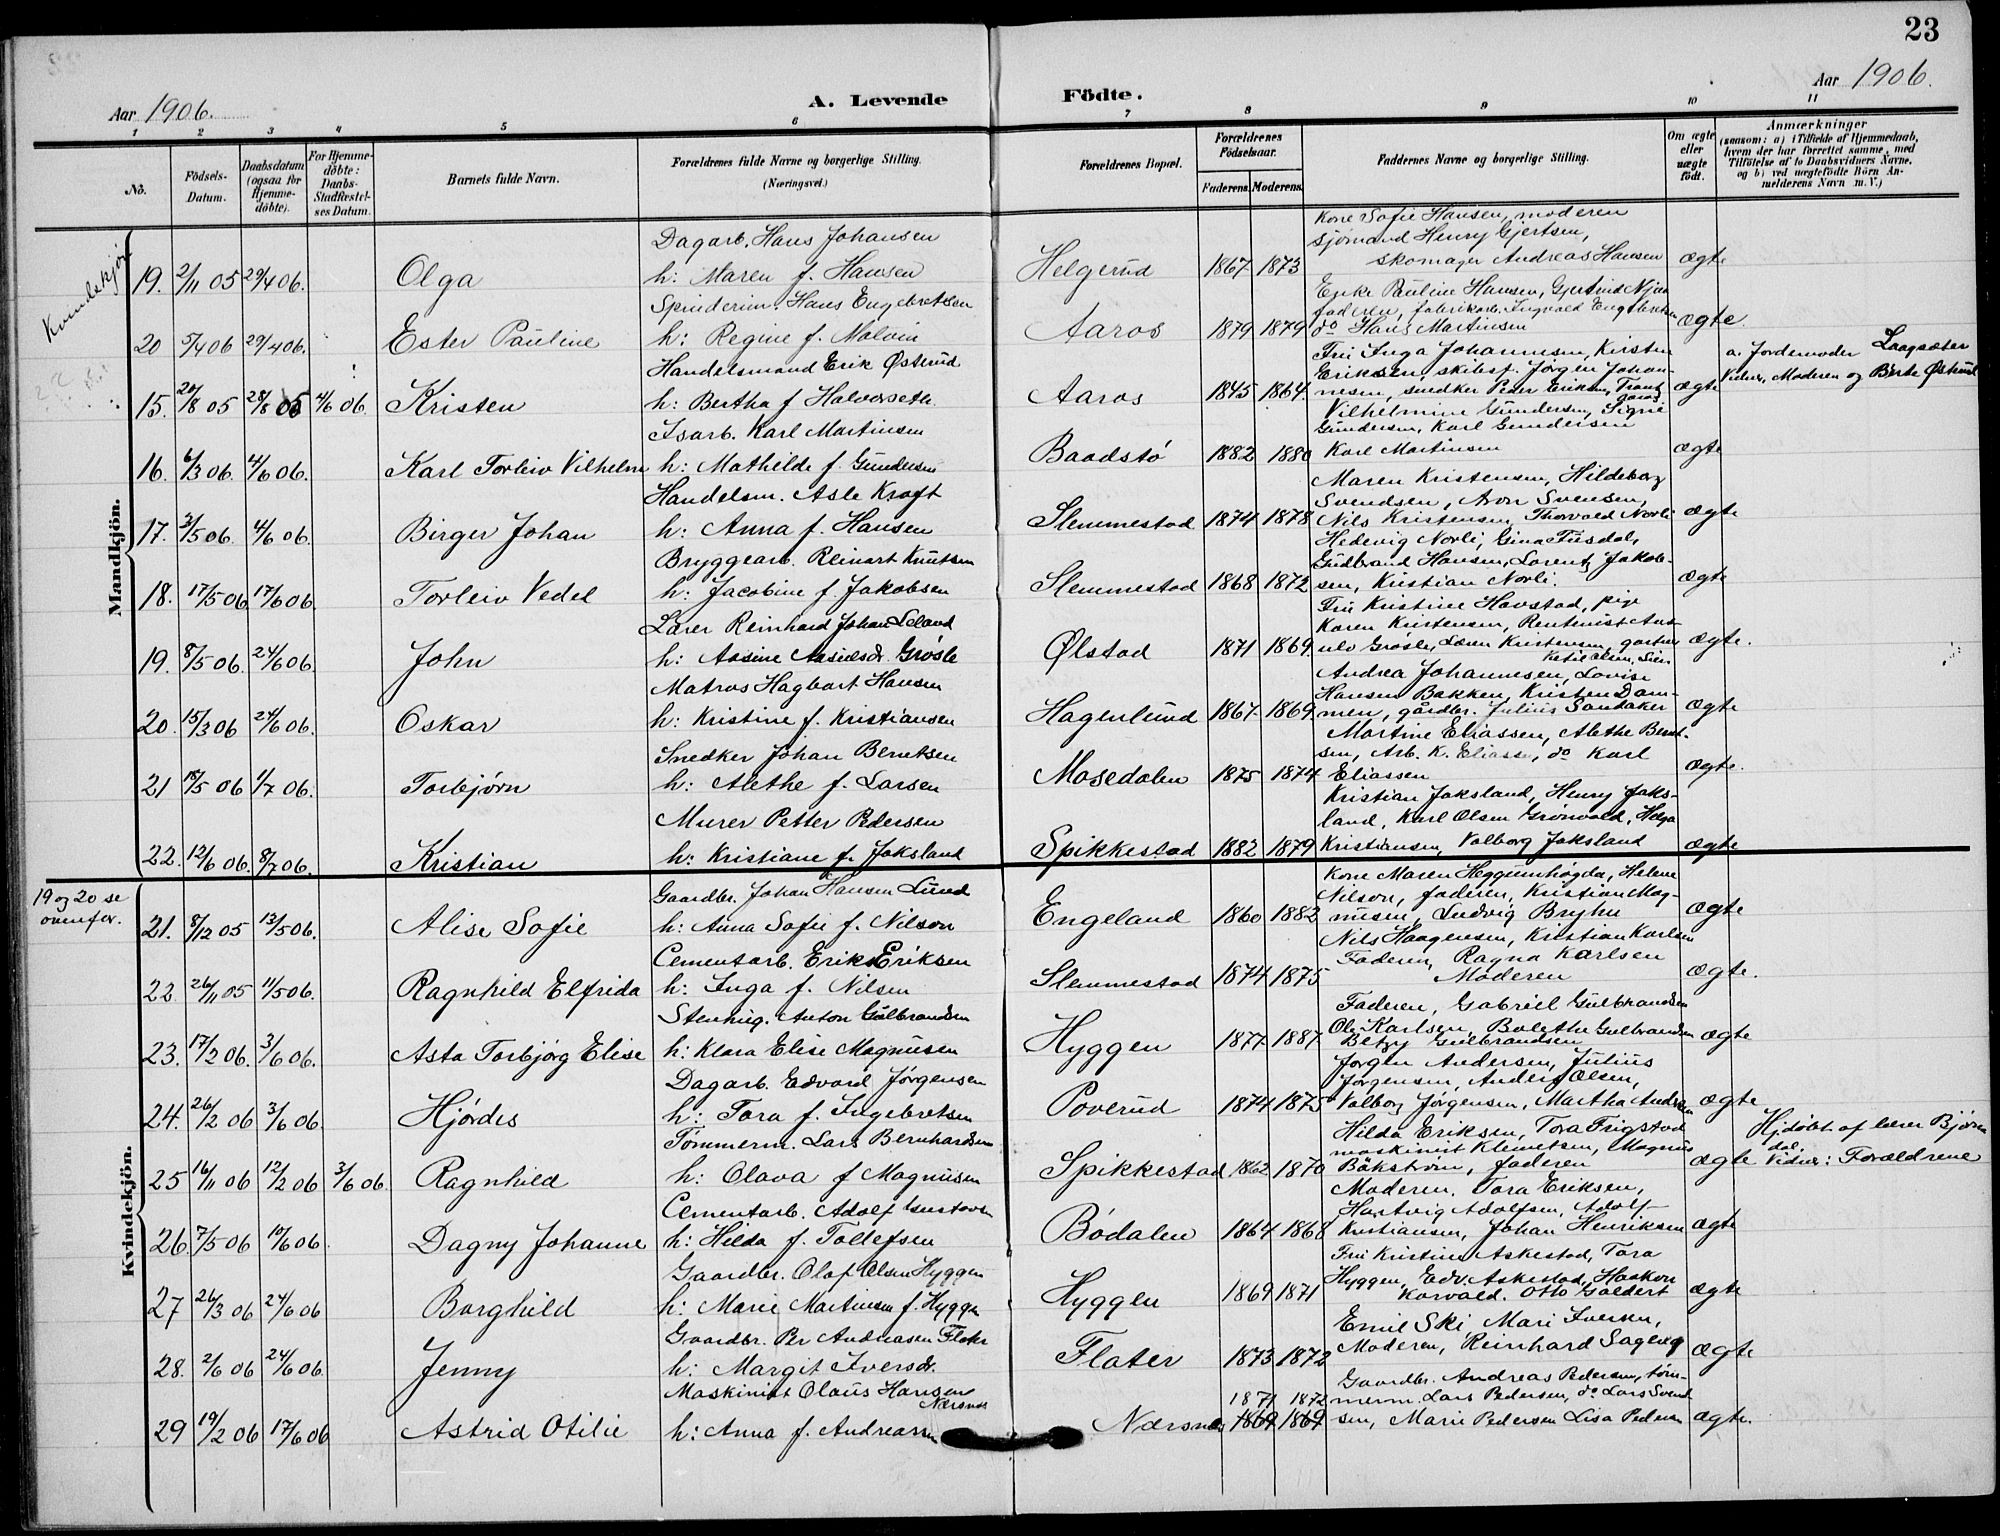 23
Aar 1906.
A. Levende
Födte.
Aar 1906.
1 2 3 4 5 6 7 8 9 10 11
No.
Födsels-Datum.
Daabsdatum (ogsaa for Hjemme-döbte).
For Hjemme-döbte: Daabs-Stadfæstel-ses Datum.
Barnets fulde Navn.
Forældrenes fulde Navne og borgerlige Stilling.
(Næringsvei.)
Forældrenes Bopæl.
Forældrenes Födselsaar.
Faderens. Moderens.
Faddernes Navne og borgerlige Stilling.
Om ægte eller uægte födt.
Anmærkninger
(saasom: a) i Tilfælde af Hjemmedaab, hvem der har forrettet samme, med Tilföielse af to Daabsvidners Navne, og b) ved uægtefödte Börn An-melderens Navn m. V.)
Kvindekjøn
Mandkjön.
Kone Sofie Hansen, moderen
Dagarb. Hans Johansen
sjømand Henry Gjertsen,
19. 2/11 05 29/4 06. Olga h: Maren f. Hansen Helgerud 1867 1873 skomager Andreas Hansen ægte
Spinderim. Hans Engebretsen
Enke Pauline Hansen, Gjertrud
faderen, fabrikarb. Ingvald Engebretsen
20 5/4 06 29/4 06. Ester Pauline h: Regine f. Malvin Aaros 1879 1879 do Hans Martinsen ægte.
Handelsmand Erik Østerud
Fru Inga Johannesen, Kirsten
Eriksen skibsf. Jørgen Johan-
a. Jordemoder Laagsæter
15. 20/8 05 28/8 05 4/6 06. Kristen h: Bertha f Halvorseth Aaros 1845 1864 nesen, snedker Peter Eriksen, ægte
Vidner, Moderen og Birte Østerud
Isarb. Karl Martinsen
Vilhelmine Gundersen, Signe
Gundersen, Karl Gundersen
16. 6/3 06. 4/6 06. Karl Torleiv Vilhelm h: Mathilde f. Gundersen Baadstø 1882 1880 Karl Martinsen ægte
Handelsm. Asle Kroft
Maren Kristensen, Hildeborg
Svendsen, Aron Svensen,
17. 3/5 06. 4/6 06. Birger Johan h: Anna f. Hansen Slemmestad 1874 1878 Nils Kristensen, Thorvald Norli ægte
Bryggearb. Reinart Knutsen
Hedevig Norli, Gina Fusdal,
Gudbrand Hansen, Lorentz Jakob-
18. 17/5 06 17/6 06. Torleiv Vedel h: Jacobine f. Jakobsen Slemmestad 1868 1872 sen, Kristian Norli. ægte
Lærer Reinhard Johan Leland
Fru Kristine Havstad, pige
Karen Kristensen, Rentenist
19. 8/5 06. 24/6 06. John h: Aasine Grøsle Ølstad 1871 1869. Grøsle, Karen Kristensen, ægte.
Matros Hagbart Hansen
Andrea Johannesen, Lovise
Hansen Bakken, Kristen Dam-
20. 15/3 06 24/6 06. Oskar h: Kristine f. Kristiansen Hagenlund 1867. 1869 men, gårdbr. Julius Sandaker ægte
Snedker Johan Berntsen
Martine Eliassen, Alethe Bernt-
sen, Arb. K. Eliassen, do Karl
21 18/5 06 1/7 06. Torbjørn h: Alethe f. Larsen Mosedalen 1875 1874 Eliassen ægte.
Murer Petter Pedersen
Kristian Joksland, Henry Joks-
land, Karl Olsen Grønvold, Helga
22. 12/6 06. 8/7 06. Kristian h: Kristiane f. Joksland Spikkestad 1882 1879 Kristiansen, Valborg Joksland ægte
19 og 20 se ovenfor.
Kvindekjön.
Gaardbr. Johan Hansen Lund
Kone Maren Heggumhøgda, Helene
Nilson, faderen, Kristian Mag-
21. 8/12 05 13/5 06. Alise Sofie h: Anna Sofie f. Nilson Engeland 1860 1882 nusen, Ludvig Bryhn ægte
Cementarb. Erik Eriksen
Nils Haagensen, Kristian Karlsen
Faderen, Ragna Karlsen
22 26/11 05 11/5 06. Ragnhild Elfrida h: Inga f. Nilsen Slemmestad 1874 1875 Moderen ægte.
Stenhug. Anton Gulbrandsen
Faderen, Gabriel Gulbrandsen
Ole Karlsen, Bolethe Gulbrandsen
23. 17/2 06. 3/6 06. Asta Torbjørg Elise h: Klara Elise Magnusen Hyggen 1877 1887 Betzy Gulbrandsen ægte
Dagarb. Edvard Jørgensen
Jørgen Andersen, Julius
Jørgensen, Anders Olsen,
24. 26/2 06 3/6 06. Hjørdis h: Tora f. Ingebretsen Poverud 1874 1875 Valborg Jørgensen, Martha Andersen ægte
Tømmerm. Lars Bernhardsen
Hilda Eriksen, Tora Frigstad
maskinist Klemetsen, Magnus
Hjdøbt af lærer Bjørndal
25 16/11 06 12/2 06 3/6 06 Ragnhild h: Olava f Magnusen Spikkestad 1862 1870 Bäkstrøm, faderen ægte
Vidner: Forældrene
Cementarb. Adolf Gustavsen
Moderen, Tora Eriksen,
Hartvig Adolfsen, Adolf
26 7/5 06 10/6 06. Dagny Johanne h: Hilda f. Tollefsen Bødalen 1864 1868 Kristiansen, Johan Henriksen ægte
Gaardbr. Olaf Olsen Hyggen
Fru Kristine Askestad, Tora
Hyggen, Edv. Askestad, Haakon
27 26/3 06 24/6 06 Borghild h: Marie Martinsen f. Hyggen Hyggen 1869 1871 Korvald. Otto Goldert ægte
Gaardbr. Per Andreasen Flater
Emil Ski, Mari Iversen,
28. 2/6 06 24/6 06. Jenny h: Margit Iversdr. Flater 1873 1872 Moderen, Reinhard Sageng ægte
Maskinist Olaus Hansen Nærsnes
Gaardbr. Andreas Pedersen, tøm-
1871 1872 merm. Lars Pedersen, do Lars Svend-
29 19/2 06 17/6 06 Astrid Otilie h: Anna f. Andreasen Nærsnes 1869 1869 sen, Marie Pedersen Lisa Pedersen ægte.